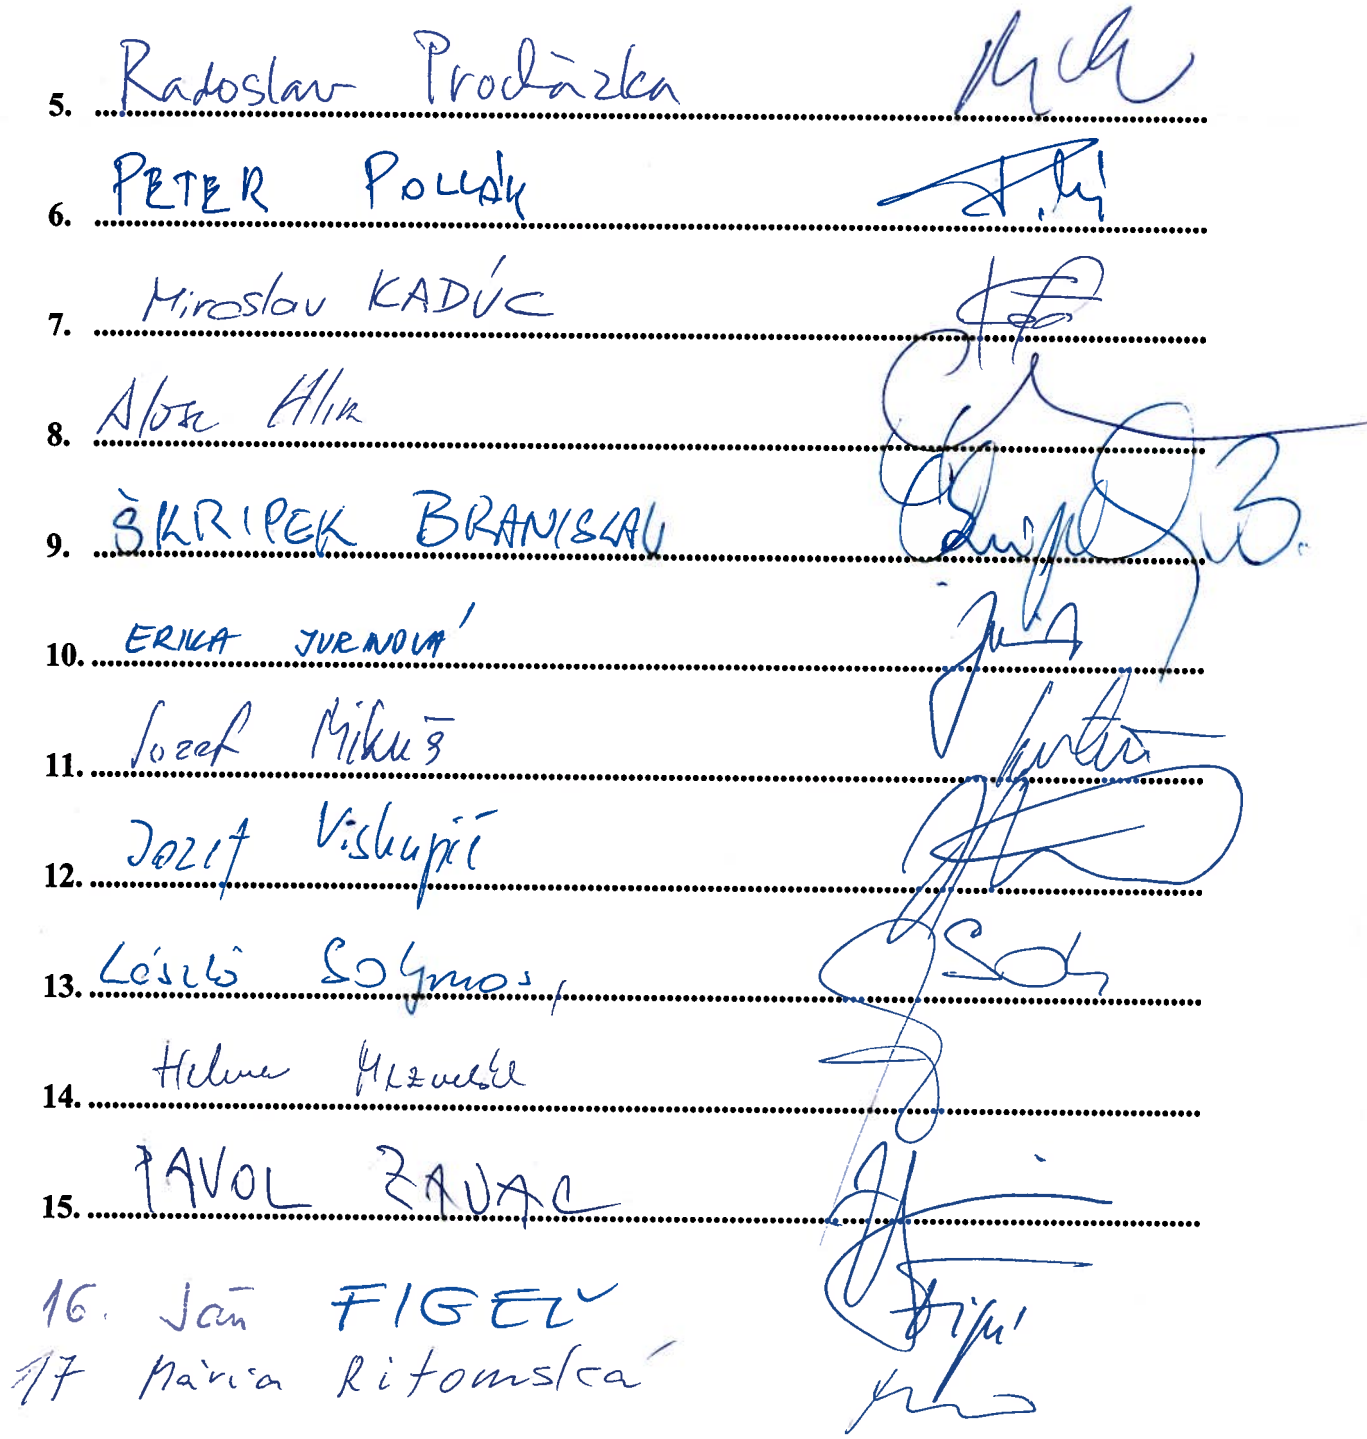 5. Radoslav Procházka
6. PETER POLLÁK
7. Miroslav KADÚC
8. Alojz Hlina
9. ŠKRIPEK BRANISLAV
10. ERIKA JURINOVÁ
11. Jozef Mikuš
12. Jozef Viskupič
13. László Solymos,
14. Helena Mezenská
15. PAVOL ZAJAC
16. Ján FIGEĽ
17 Mária Ritomská